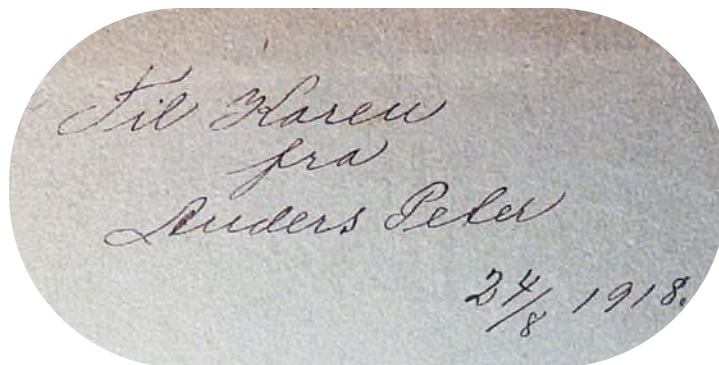 Til Karen
fra
Anders Peter
24/8 1918.